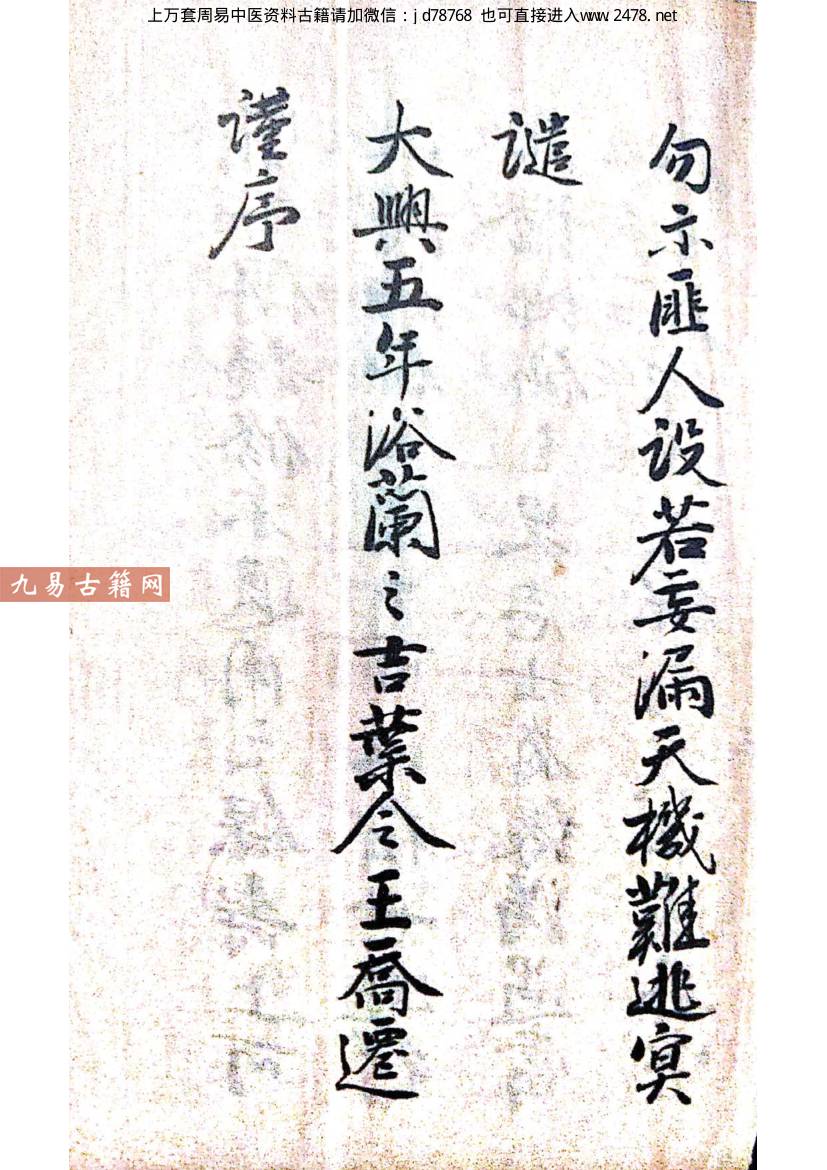 上万套周易中医资料古籍请加微信：jd78768 也可直接进入www.2478.net
勿示匪人设若妄漏天機難逃冥
譴
大興五年浴蘭之吉葉令王喬遷
謹序
九易古籍网